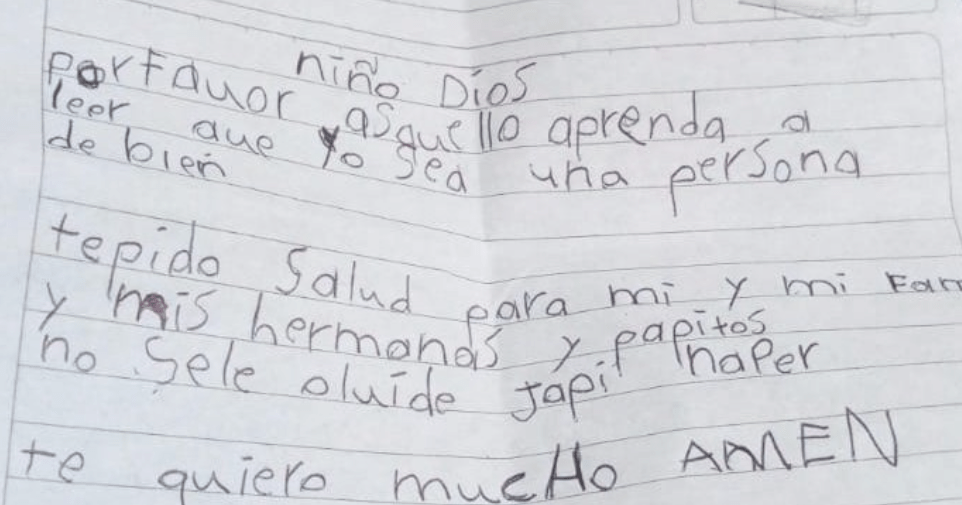 niño Dios
porfavor asque llo aprenda a
leer que yo sea una persona
de bien
tepido Salud para mi y mi Fam
y mis hermanos y papitos
no sele oluide japi naper
te quiero mucHo AMEN